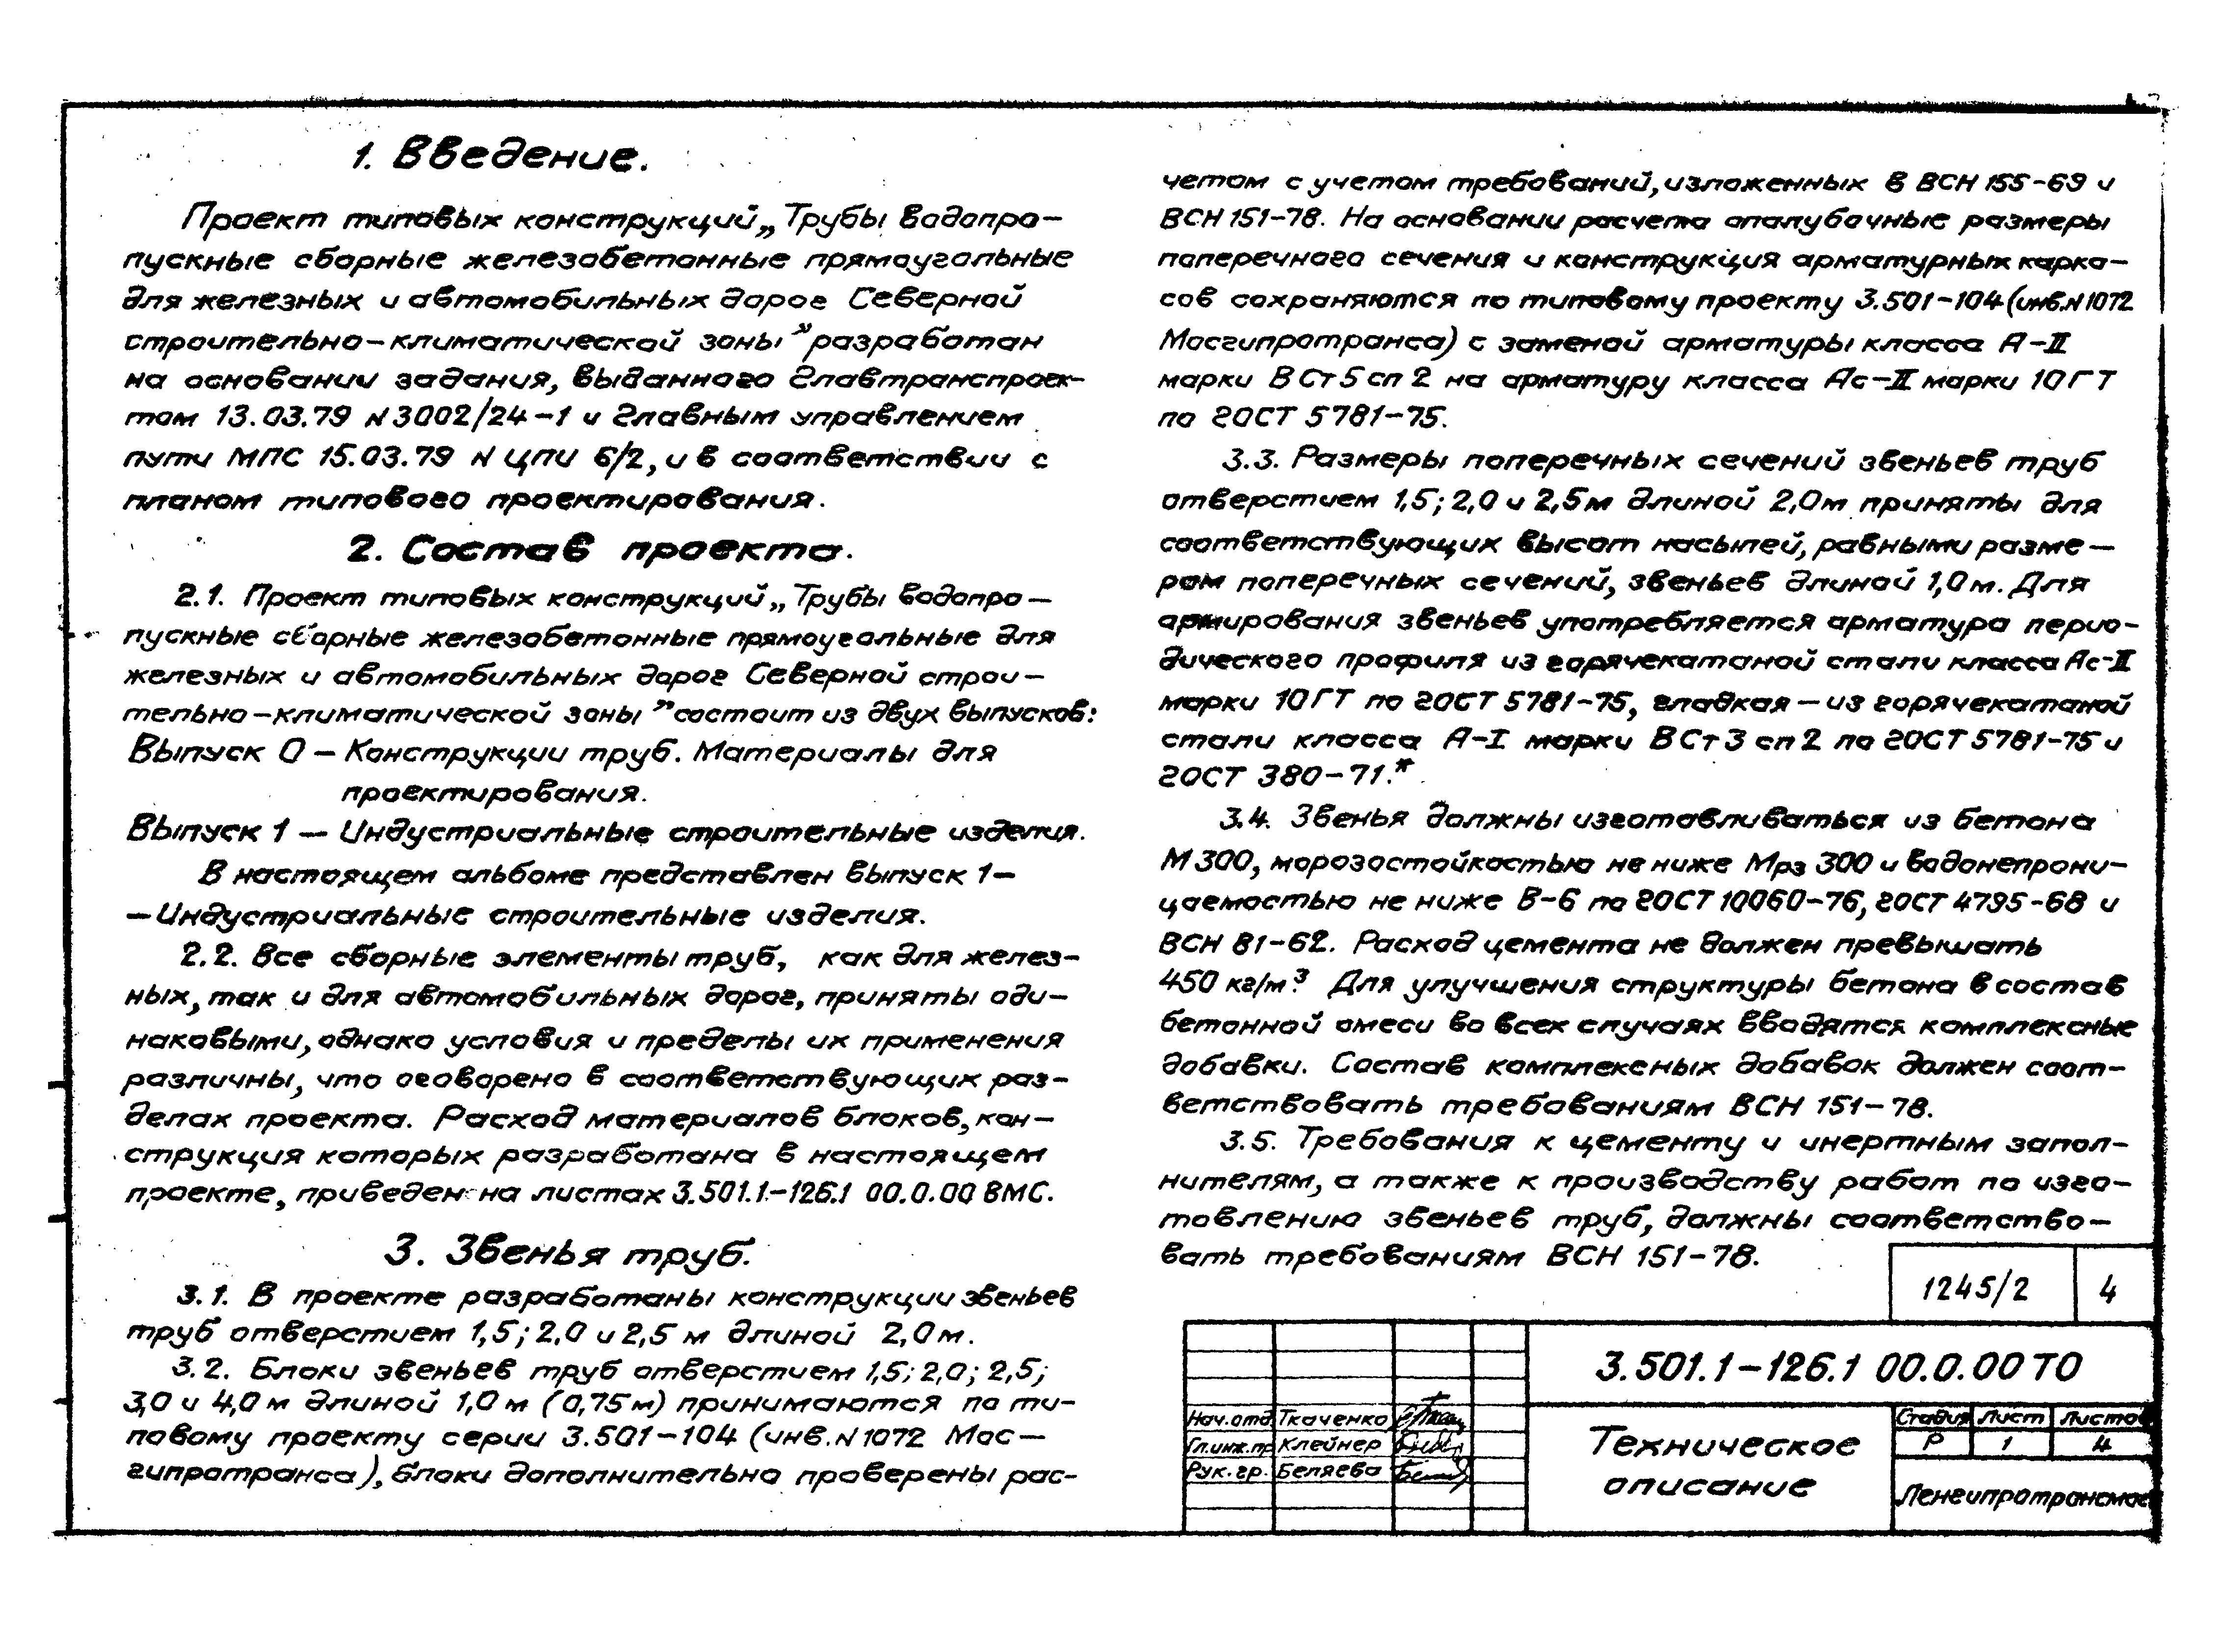 1. Введение.
Проект типовых конструкций „Трубы водопро-
пускные сборные железобетонные прямоугольные
для железных и автомобильных дорог Северной
строительно-климатической зоны” разработан
на основании задания, выданного Главтранспроек-
том 13.03.79 N 3002/24-1 и Главным управлением
пути МПС 15.03.79 N ЦПИ 6/2, и в соответствии с
планом типового проектирования.
2. Состав проекта.
2.1. Проект типовых конструкций „Трубы водопро-
пускные сборные железобетонные прямоугольные для
железных и автомобильных дорог Северной строи-
тельно-климатической зоны” состоит из двух выпусков:
Выпуск 0 - Конструкции труб. Материалы для
проектирования.
Выпуск 1 - Индустриальные строительные изделия.
В настоящем альбоме представлен выпуск 1-
- Индустриальные строительные изделия.
2.2. Все сборные элементы труб, как для желез-
ных, так и для автомобильных дорог, приняты оди-
наковыми, однако условия и пределы их применения
различны, что оговорено в соответствующих раз-
делах проекта. Расход материалов блоков, кон-
струкция которых разработана в настоящем
проекте, приведен на листах 3.501.1-126.1 00.0.00 ВМС.
3. Звенья труб.
3.1. В проекте разработаны конструкции звеньев
труб отверстием 1,5; 2,0 и 2,5 м длиной 2,0 м.
3.2. Блоки звеньев труб отверстием 1,5; 2,0; 2,5;
3,0 и 4,0 м длиной 1,0 м (0,75 м) принимаются по ти-
повому проекту серии 3.501-104 (инв. N 1072 Мос-
гипротранса), блоки дополнительно проверены рас-
четом с учетом требований, изложенных в ВСН 155-69 и
ВСН 151-78. На основании расчета опалубочные размеры
поперечного сечения и конструкция арматурных карка-
сов сохраняются по типовому проекту 3.501-104 (инв. N 1072
Мосгипротранса) с заменой арматуры класса А-II
марки ВСт5сп2 на арматуру класса Ас-II марки 10ГТ
по ГОСТ 5781-75.
3.3. Размеры поперечных сечений звеньев труб
отверстием 1,5; 2,0 и 2,5 м длиной 2,0 м приняты для
соответствующих высот насыпей, равными разме-
ром поперечных сечений, звеньев длиной 1,0 м. Для
армирования звеньев употребляется арматура перио-
дического профиля из горячекатаной стали класса Ас-II
марки 10ГТ по ГОСТ 5781-75, гладкая - из горячекатаной
стали класса А-I марки ВСт3сп2 по ГОСТ 5781-75 и
ГОСТ 380-71.*
3.4. Звенья должны изготавливаться из бетона
М300, морозостойкостью не ниже Мрз 300 и водонепрони-
цаемостью не ниже В-6 по ГОСТ 10060-76, ГОСТ 4795-68 и
ВСН 81-62. Расход цемента не должен превышать
450 кг/м³. Для улучшения структуры бетона в состав
бетонной смеси во всех случаях вводятся комплексные
добавки. Состав комплексных добавок должен соот-
ветствовать требованиям ВСН 151-78.
3.5. Требования к цементу и инертным запол-
нителям, а также к производству работ по изго-
товлению звеньев труб, должны соответство-
вать требованиям ВСН 151-78.
1245/2 4
3.501.1-126.1 00.0.00 ТО
Нач.отд. Ткаченко
Гл.инж.пр Клейнер
Рук.гр. Беляева
Техническое
описание
Стадия Лист Листов
Р 1 4
Ленгипротрансмост